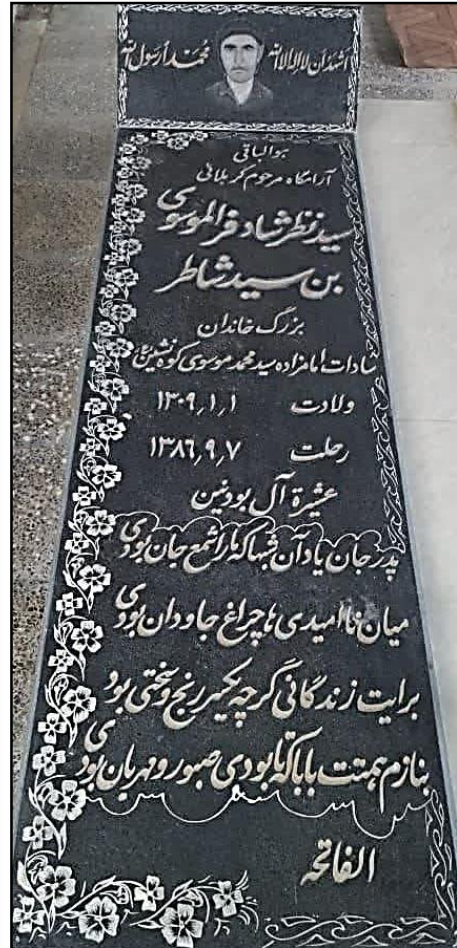 اشهد ان لا اله الا الله
محمدا رسول الله
هوالباقی
آرامگاه مرحوم کربلائی
سید نظر شادفر الموسوی
بن سید شاطر
بزرگ خاندان
سادات امامزاده سید محمد موسوی کوه نشین
ولادت ۱۳۰۹٫۱٫۱
رحلت ۱۳۸٦٫۹٫۷
عشیرة آل بودنین
پدر جان یاد آن شبها که ما را شمع جان بودی
میان ناامیدی ها چراغ جاودان بودی
برایت زندگانی گرچه یکسر رنج و سختی بود
بنازم همتت بابا که تا بودی صبور و مهربان بودی
الفاتحه